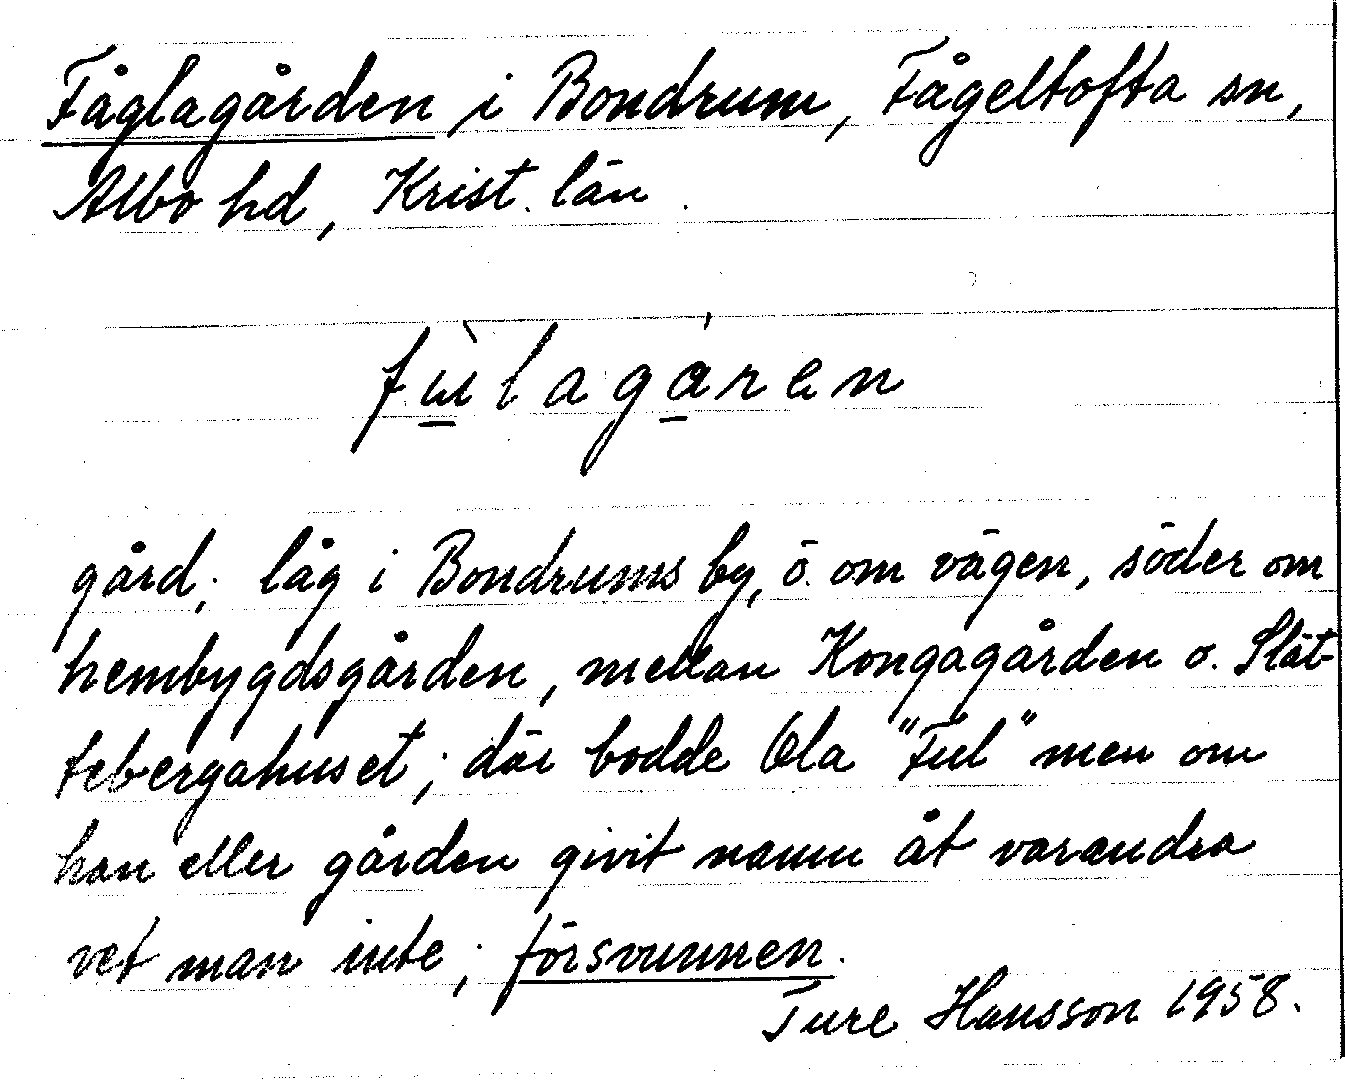 Fåglagården i Bondrum, Fågeltofta sn,
Albo hd, Krist. län.
fùlagåren
gård; låg i Bondrums by, ö. om vägen, söder om
hembygdsgården, mellan Kongagården o. Slät-
tebergahuset; där bodde Ola "Ful" men om
han eller gården givit namn åt varandra
vet man inte; försvunnen.
Ture Hansson 1958.